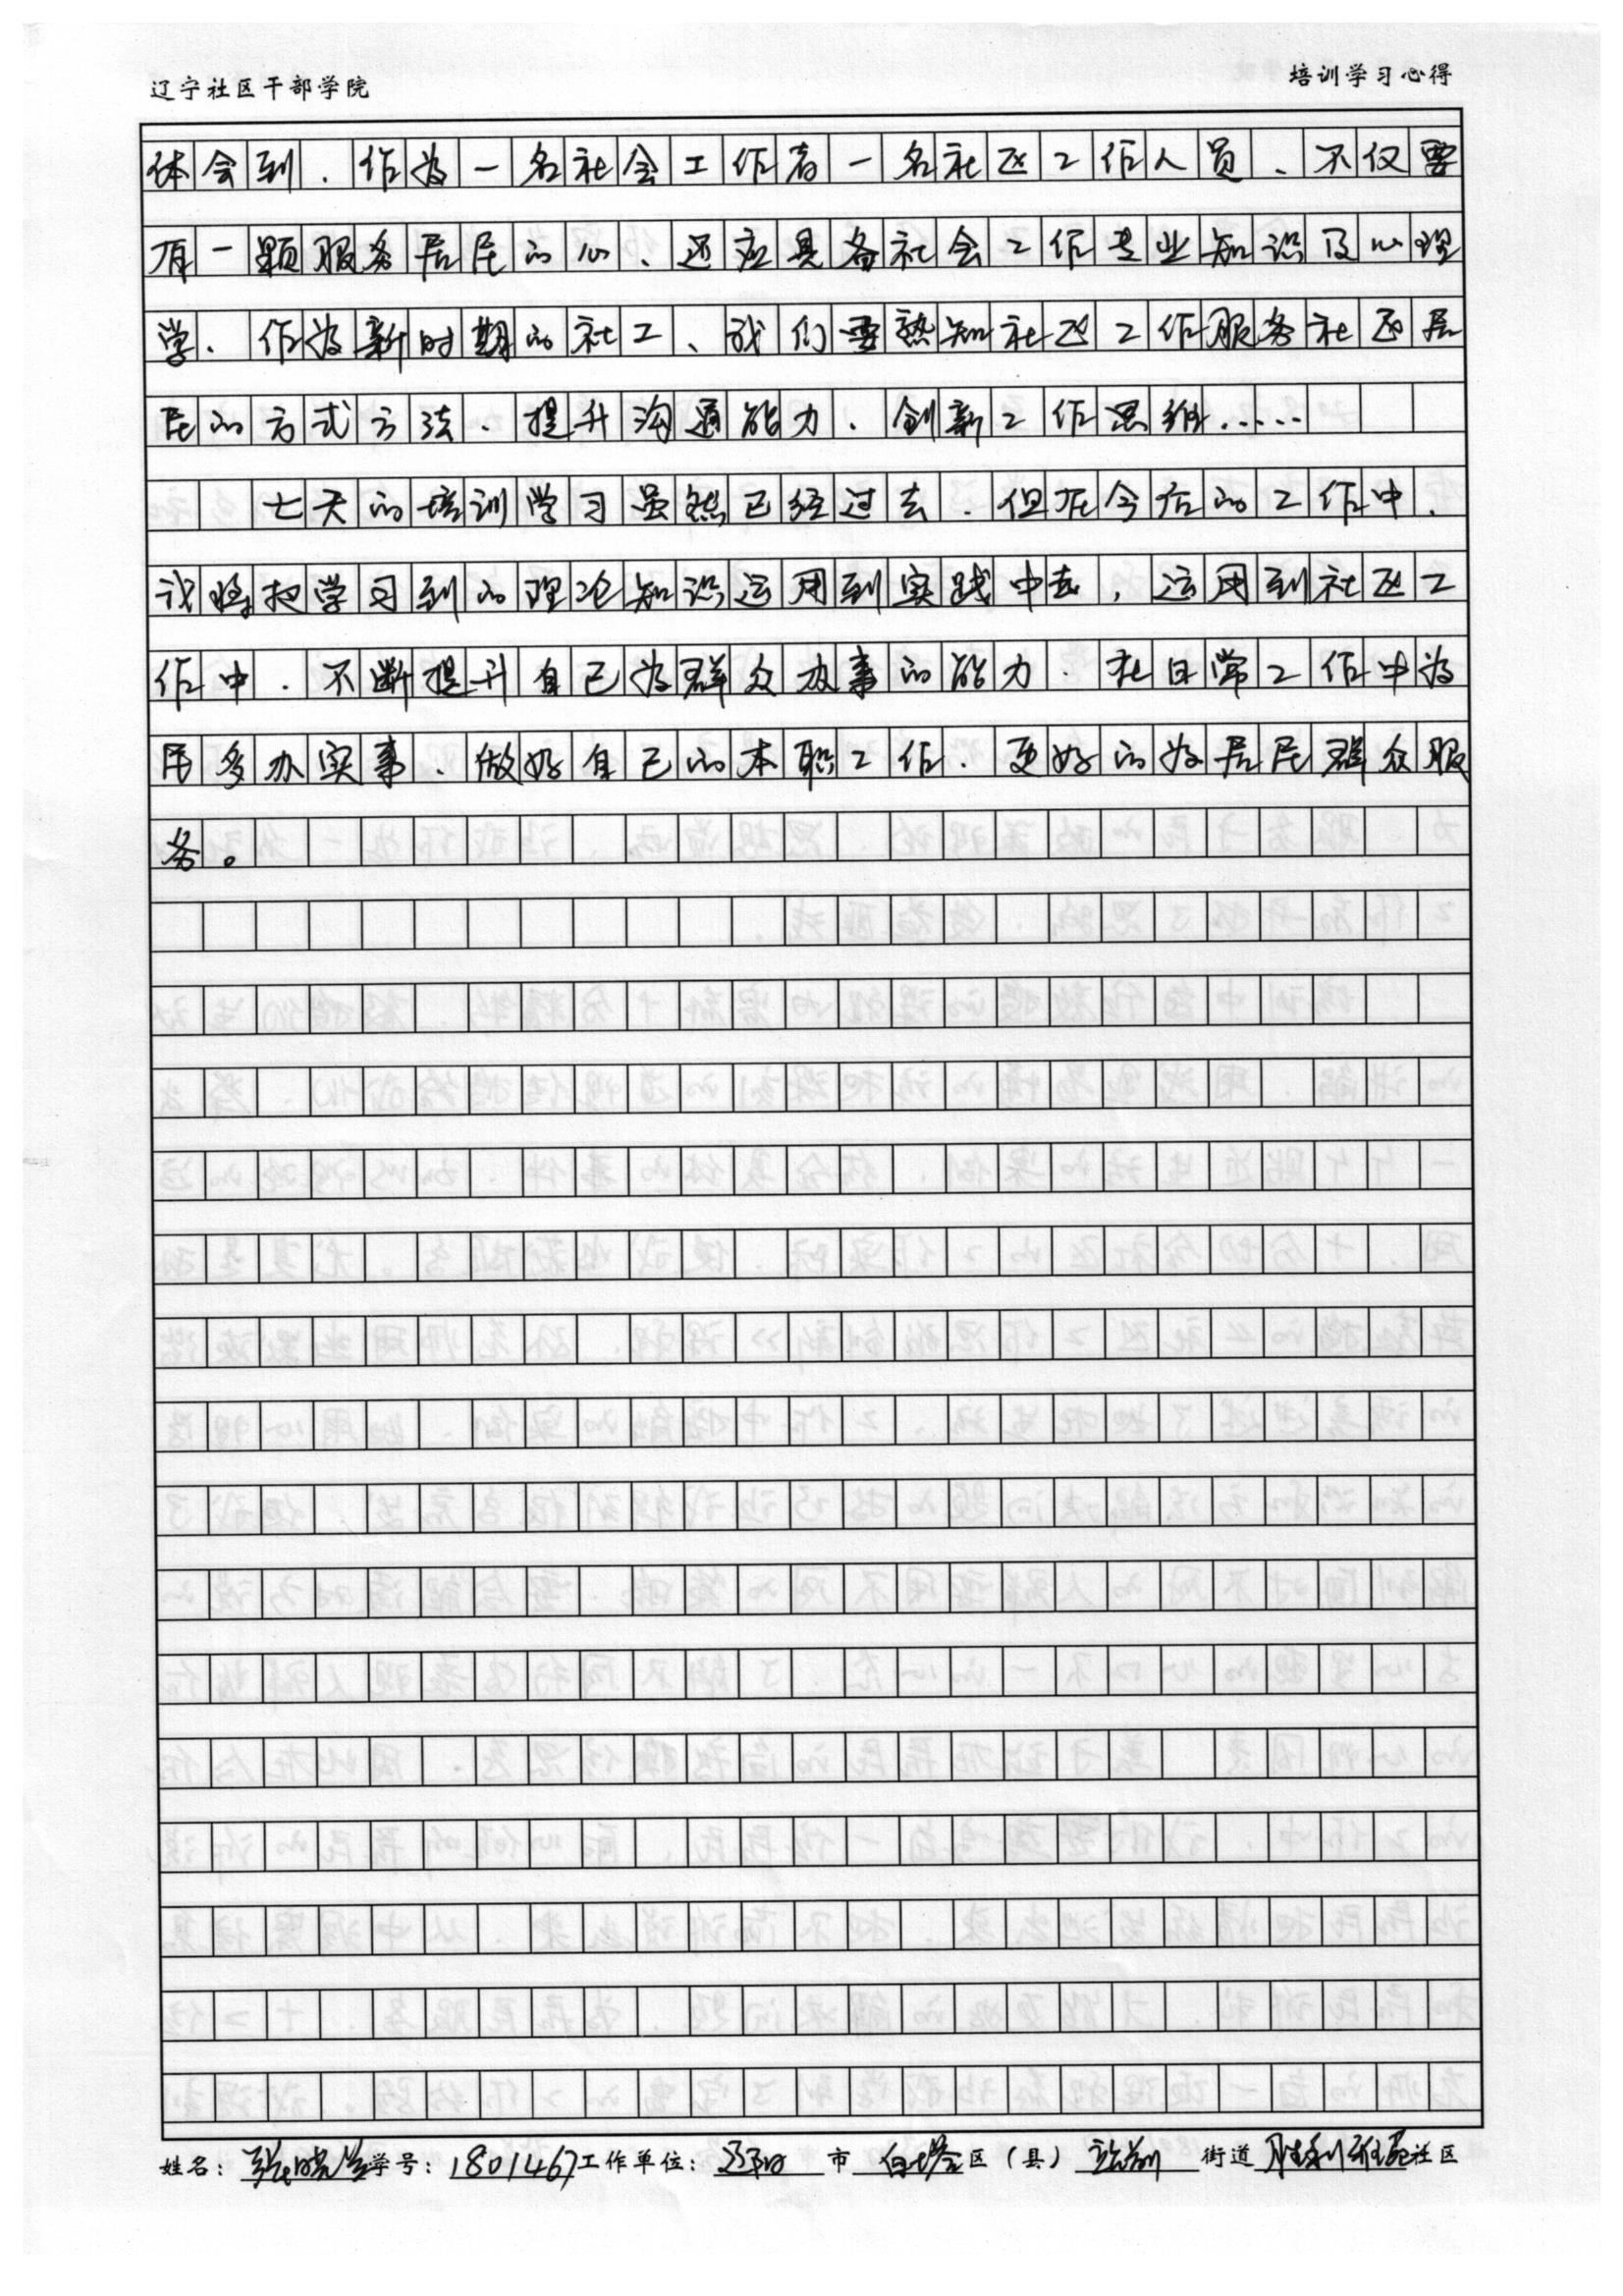 辽宁社区干部学院 培训学习心得
体会到.作为一名社会工作者一名社区工作人员、不仅要
有一颗服务居民的心、还应具备社会工作专业知识及心理
学、作为新时期的社工、我们要熟知社区工作服务社区居
民的方式方法、提升沟通能力、创新工作思维.....
七天的培训学习虽然已经过去.但在今后的工作中.
我将把学习到的理论知识运用到实践中去,运用到社区工
作中.不断提升自己为群众办事的能力.在日常工作中为
民多办实事、做好自己的本职工作.更好的为居民群众服
务。
姓名:张晓兰学号:1801467工作单位:辽阳市白塔区(县)站前街道胜利雅苑社区